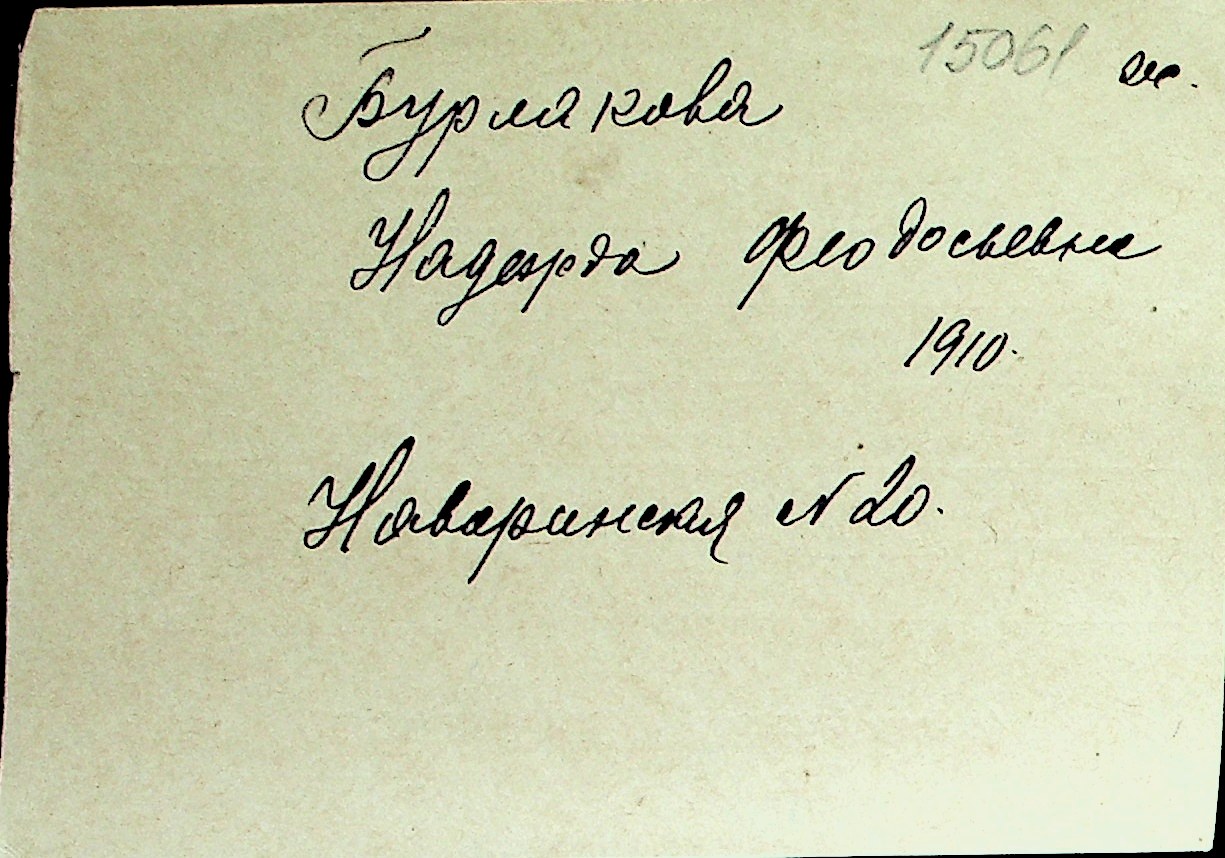 15061 ж.
Бурлакова
Надежда Феодосьевна
1910.
Наваринская N 20.